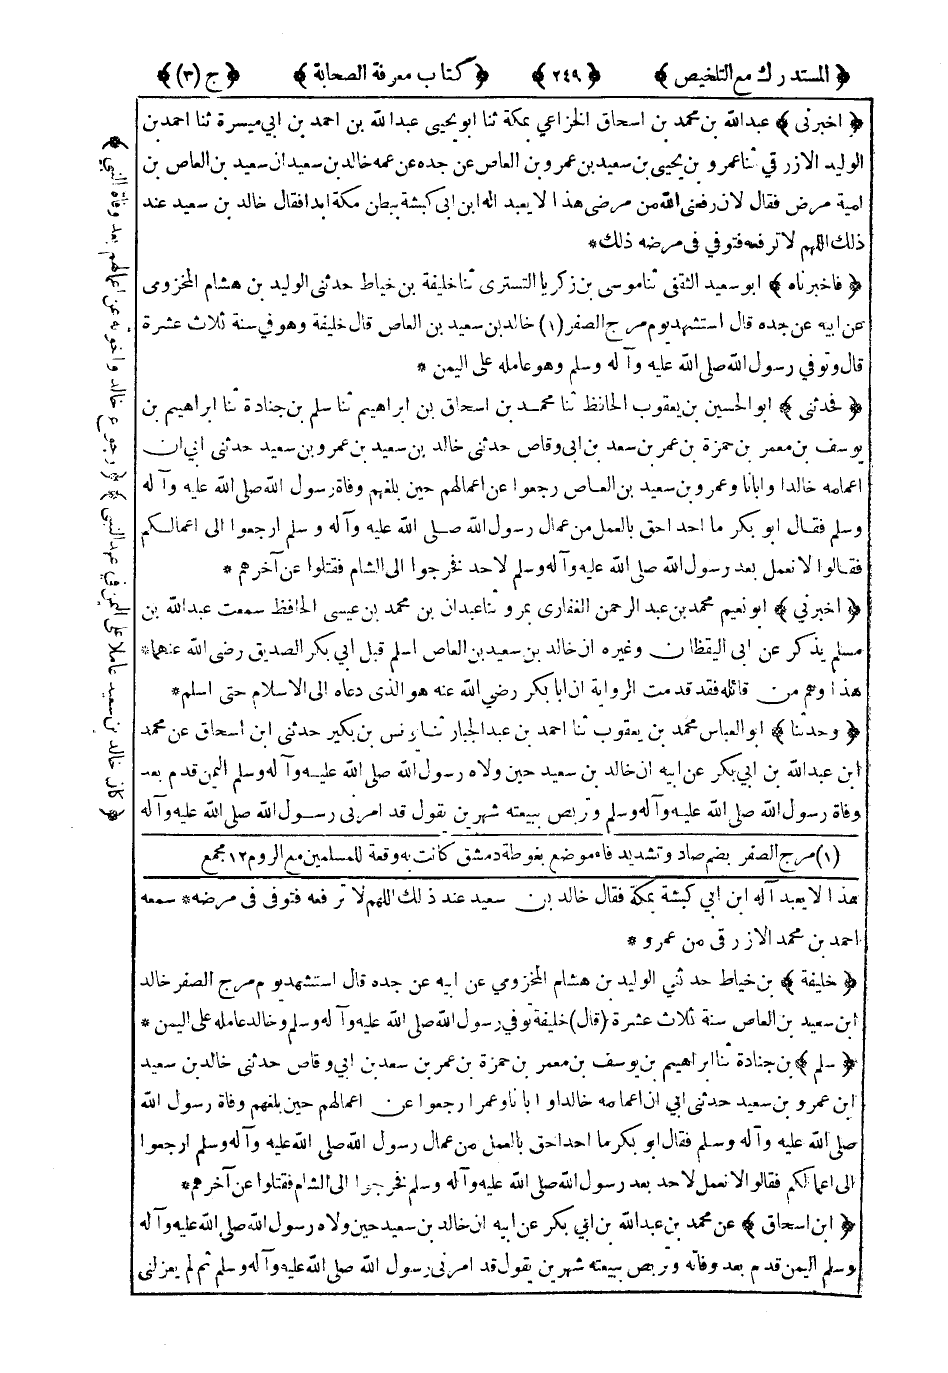 ﴿ المستدرك مع التلخيص ﴾ ﴿ ٢٤٩ ﴾ ﴿ كتاب معرفة الصحابة ﴾ ﴿ ج (٣) ﴾
﴿ اخبرنى ﴾ عبدالله بن محمد بن اسحاق الخزاعي بمكة ثنا ابو يحيى عبدالله بن احمد بن ابي ميسرة ثنا احمد بن
الوليد الازرقي ثنا عمرو بن يحيى بن سعيد بن عمرو بن العاص عن جده عن عمه خالد بن سعيد ان سعيد بن العاص بن
امية مرض فقال لان رفعنى الله من مرضى هذا لا يعبد اله ابن ابى كبشة ببطن مكة ابدا فقال خالد بن سعيد عند
ذلك اللهم لا ترفعه فتوفي في مرضه ذلك*
﴿ فاخبرناه ﴾ ابو سعيد الثقفى ثنا موسى بن زكريا التسترى ثنا خليفة بن خياط حدثنى الوليد بن هشام المخزومى
عن ابيه عن جده قال استشهد يوم مرج الصفر (١) خالد بن سعيد بن العاص قال خليفة وهو في سنة ثلاث عشرة
قال وتوفي رسول الله صلى الله عليه وآله وسلم وهو عامله على اليمن *
﴿ فحدثنى ﴾ ابو الحسين بن يعقوب الحافظ ثنا محمد بن اسحاق بن ابراهيم ثنا سلم بن جنادة ثنا ابراهيم بن
يوسف بن معمر بن حمزة بن عمر بن سعد بن ابى وقاص حدثنى خالد بن سعيد بن عمرو بن سعيد حدثنى ابي ان
اعمامه خالدا وابانا وعمرو بن سعيد بن العاص رجعوا عن اعمالهم حين بلغهم وفاة رسول الله صلى الله عليه وآله
وسلم فقال ابو بكر ما احد احق بالعمل من عمال رسول الله صلى الله عليه وآله وسلم ارجعوا الى اعمالكم
فقالوا لا نعمل بعد رسول الله صلى الله عليه وآله وسلم لاحد فخرجوا الى الشام فقتلوا عن آخرهم *
﴿ اخبرنى ﴾ ابو نعيم محمد بن عبد الرحمن الغفارى بمرو ثنا عبدان بن محمد بن عيسى الحافظ سمعت عبدالله بن
مسلم يذكر عن ابى اليقظان وغيره ان خالد بن سعيد بن العاص اسلم قبل ابي بكر الصديق رضى الله عنهما*
هذا وهم من قائله فقد قدمت الرواية ان ابا بكر رضي الله عنه هو الذى دعاه الى الاسلام حتى اسلم*
﴿ وحدثنا ﴾ ابو العباس محمد بن يعقوب ثنا احمد بن عبد الجبار ثنا يونس بن بكير حدثنى ابن اسحاق عن محمد
ابن عبدالله بن ابي بكر عن ابيه ان خالد بن سعيد حين ولاه رسول الله صلى الله عليه وآله وسلم اليمن قدم بعد
وفاة رسول الله صلى الله عليه وآله وسلم وتربص ببيعته شهرين يقول قد امرنى رسول الله صلى الله عليه وآله
(١) مرج الصفر بضم صاد وتشديد فاء موضع بغوطة دمشق كانت به وقعة للمسلمين مع الروم ١٢ مجمع
هذا لا يعبد آله ابن ابي كبشة بمكة فقال خالد بن سعيد عند ذلك اللهم لا ترفعه فتوفى فى مرضه* سمعه
احمد بن محمد الازرقى من عمرو *
﴿ خليفة ﴾ بن خياط حدثني الوليد بن هشام المخزومي عن ابيه عن جده قال استشهد يوم مرج الصفر خالد
ابن سعيد بن العاص سنة ثلاث عشرة (قال) خليفة توفي رسول الله صلى الله عليه وآله وسلم وخالد عامله على اليمن *
﴿ سلم ﴾ بن جنادة ثنا ابراهيم بن يوسف بن معمر بن حمزة بن عمر بن سعد بن ابي وقاص حدثنى خالد بن سعيد
ابن عمرو بن سعيد حدثنى ابي ان اعمامه خالدا و ابانا وعمرا رجعوا عن اعمالهم حين بلغهم وفاة رسول الله
صلى الله عليه وآله وسلم فقال ابو بكر ما احد احق بالعمل من عمال رسول الله صلى الله عليه وآله وسلم ارجعوا
الى اعمالكم فقالوا لا نعمل لاحد بعد رسول الله صلى الله عليه وآله وسلم فخرجوا الى الشام فقتلوا عن آخرهم*
﴿ ابن اسحاق ﴾ عن محمد بن عبدالله بن ابي بكر عن ابيه ان خالد بن سعيد حين ولاه رسول الله صلى الله عليه وآله
وسلم اليمن قدم بعد وفاته وتربص ببيعته شهرين يقول قد امرنى رسول الله صلى الله عليه وآله وسلم ثم لم يعزلنى
﴿ كان خالد بن سعيد عاملا على اليمن في عهد النبى ﴾ ﴿ رجوع خالد واخوته عن اعمالهم بعد وفاة النبي ﴾